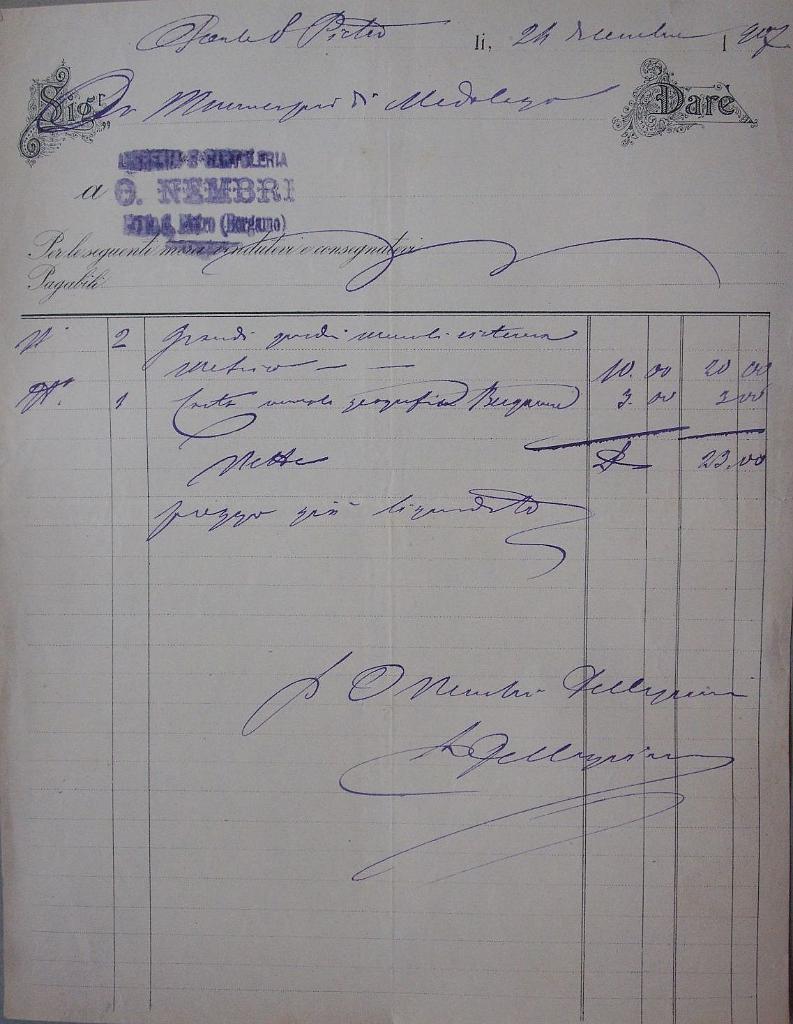 Ponte S Pietro li, 24 dicembre 1907
Sigr Municipio di Medolago Dare
99
a
LIBRERIA E CARTOLERIA
O. NEMBRI
Ponte S. Pietro (Bergamo)
Per le seguenti merci vendutevi e consegnatevi
Pagabili
N° 2 Grandi quadri murali sistema
metrico — — 10.00 20 00
N°. 1 Carta murale geografica Bergamo 3.00 3 00
Netto £ 23.00
prezzo già liquidato
p O Nembri Pellegrini
Pellegrini